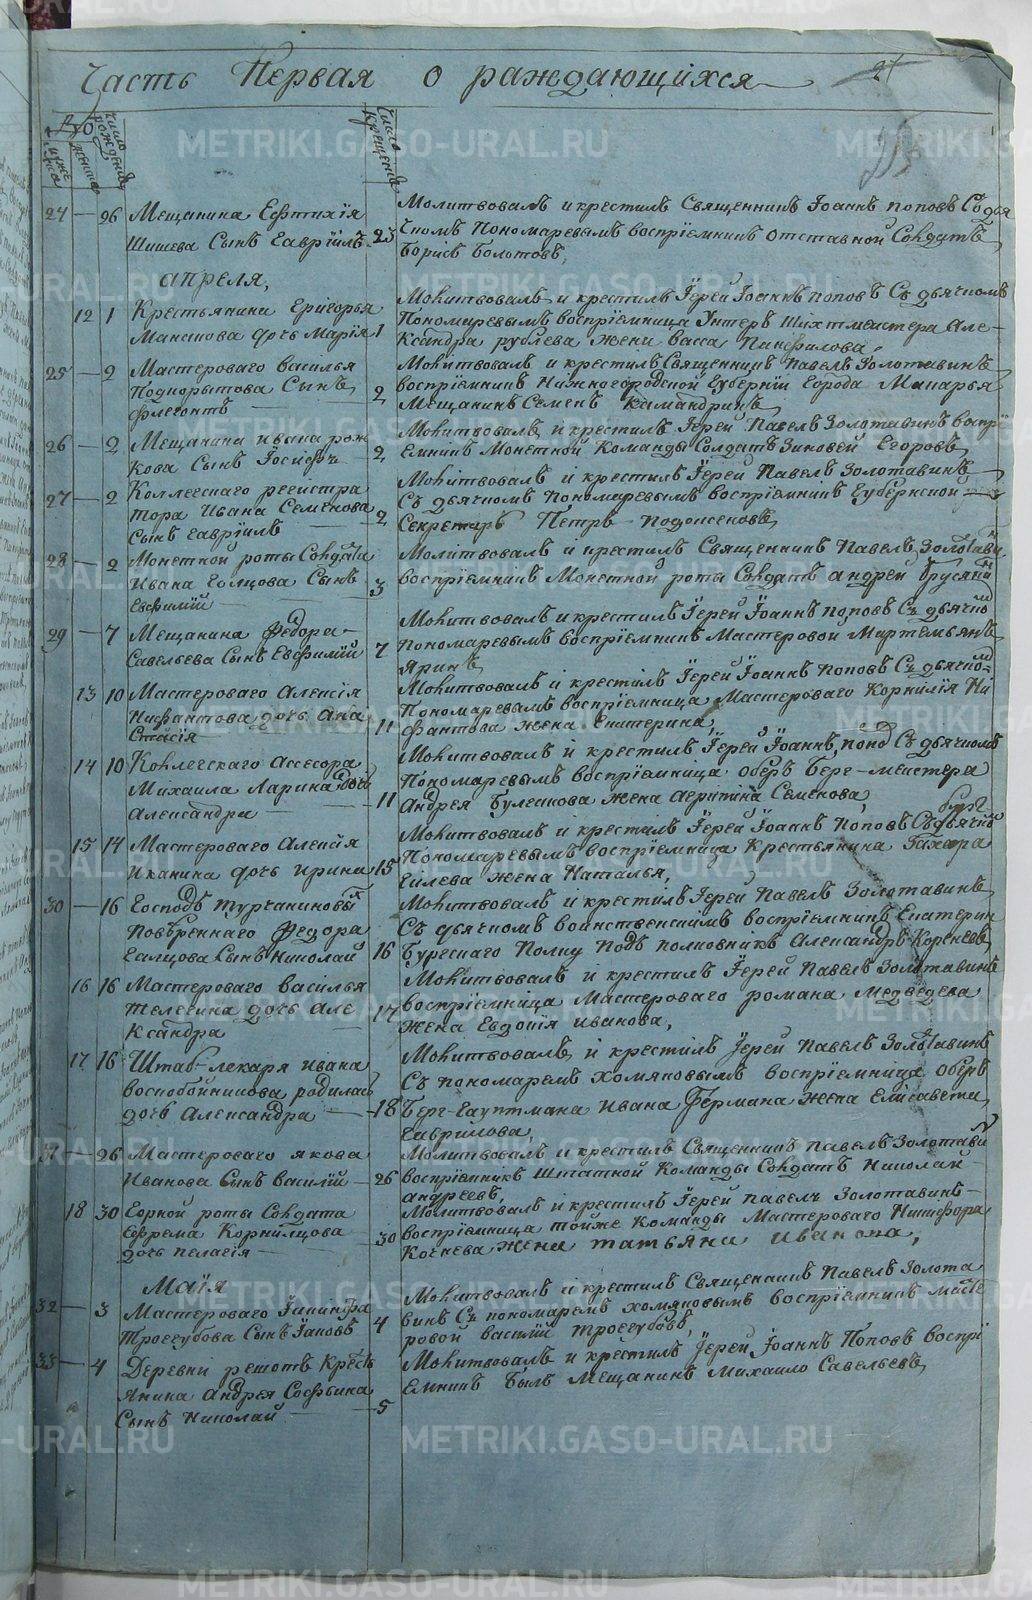 Часть Первая о раждающихся
число рожденiя
число крещенiя
24 — 26 Мещанина Ефтихiя
Шишева Сынъ Гаврiилъ
23
Молитвовалъ и крестилъ Священникъ Iоаннъ поповъ Съ дья
Пономаревымъ воспрiемникъ отставной Солдатъ
Борисъ Болотовъ,
апреля,
12 1 Крестьянина Григорья
дочь Марiя 1
Молитвовалъ и крестилъ Iерей Iоаннъ поповъ Съ дьячкомъ
Пономаревымъ воспрiемница Унтеръ Шихтмейстера Але-
ксандра рублева жена васса Панфилова.
25 — 2 Мастероваго василья
Сынъ
флегонтъ 2
Молитвовалъ и крестилъ Священникъ Павелъ Золотавинъ
воспрiемникъ Нижногородской Губернiи города Макарья
Мещанинъ Семенъ
26 — 2 Мещанина ивана рож
кова Сынъ Iосифъ 2
Молитвовалъ и крестилъ Iерей Павелъ Золотавинъ воспрi
емникъ Монетной Команды Солдатъ Зиновей Егоровъ
27 — 2 Коллегскаго регистра
тора Ивана Семенова
Сынъ Гаврiилъ 2
Молитвовалъ и крестилъ Iерей Павелъ Золотавинъ
Съ дьячкомъ пономаревымъ воспрiемникъ Губернской
Секретарь Петръ
28 — 2 Монетной роты Солдата
Ивана Голцова Сынъ
Евфимiй 3
Молитвовалъ и крестилъ Священникъ Павелъ Золотави
воспрiемникъ Монетной роты Солдатъ андрей
29 — 7 Мещанина Федора
Савельева Сынъ Евфимiй 7
Молитвовалъ и крестилъ Iерей Iоаннъ поповъ Съ дьячко
пономаревымъ воспрiемникъ Мастеровой Мартемьянъ
13 10 Мастероваго Алексiя
Нифантова дочь Ана
стасiя 11
Молитвовалъ и крестилъ Iерей Iоаннъ поповъ Съ дьячко
Пономаревымъ воспрiемница Мастероваго Корнилiя Ни
фантова жена Екатерина,
14 10 Коллегскаго Ассесора
Михаила Ларина дочь
Александра 11
Молитвовалъ и крестилъ Iерей Iоаннъ попо Съ дьячкомъ
Пономаревымъ воспрiемница оберъ Берг-меистера
Андрея жена агрипина Семенова,
15 14 Мастероваго Алексiя
Иканина дочь Ирина 15
Молитвовалъ и крестилъ Iерей Iоаннъ поповъ
Пономаревымъ воспрiемница Крестьянина Захара
жена Наталья,
30 — 16 Господъ Турчаниновы
Повѣреннаго Федора
Галцова Сынъ Николай 16
Молитвовалъ и крестилъ Iерей Павелъ Золотавинъ
Съ дьячкомъ воинственскимъ воспрiемникъ Екатерин
Бургскаго Полку Подъ полковникъ Александръ Корнеевъ
16 16 Мастероваго василья
Телегина дочь Але
ксандра 17
Молитвовалъ и крестилъ Iерей Павелъ Золотавинъ
воспрiемница Мастероваго романа Медведева
жена Евдокiя иванова,
17 16 Штаб-лекаря ивана
воспобойникова родилас
дочь Александра 18
Молитвовалъ и крестилъ Iерей Павелъ Золотавинъ
Съ пономаремъ хомяковымъ воспрiемница оберъ
Берг-гауптмана Ивана Германа жена Елисавета
Гаврилова,
31 — 26 Мастероваго якова
Иванова Сынъ василiй 26
Молитвовалъ и крестилъ Священникъ павелъ Золотави
воспрiемникъ штатной Команды Солдатъ Николай
андреевъ,
18 30 Горной роты Солдата
Ефрема Корнилцова
дочь пелагiя 30
Молитвовалъ и крестилъ Iерей павелъ Золотавинъ
воспрiемница тойже Команды Мастероваго Никифора
жена татьяна ивановa,
Маiя
32 — 3 Мастероваго Iакинфа
Трегубова Сынъ Iаковъ 4
Молитвовалъ и крестилъ Священникъ Павелъ Золота
винъ Съ пономаремъ хомяковымъ воспрiемникъ масте
ровой василiй Трегубовъ,
33 — 4 Деревни решотъ Крест
янина андрея Софьина
Сынъ Николай 5
Молитвовалъ и крестилъ Iерей Iоаннъ Поповъ воспрi
емникъ былъ Мещанинъ Михаило Савельевъ
METRIKI.GASO-URAL.RU